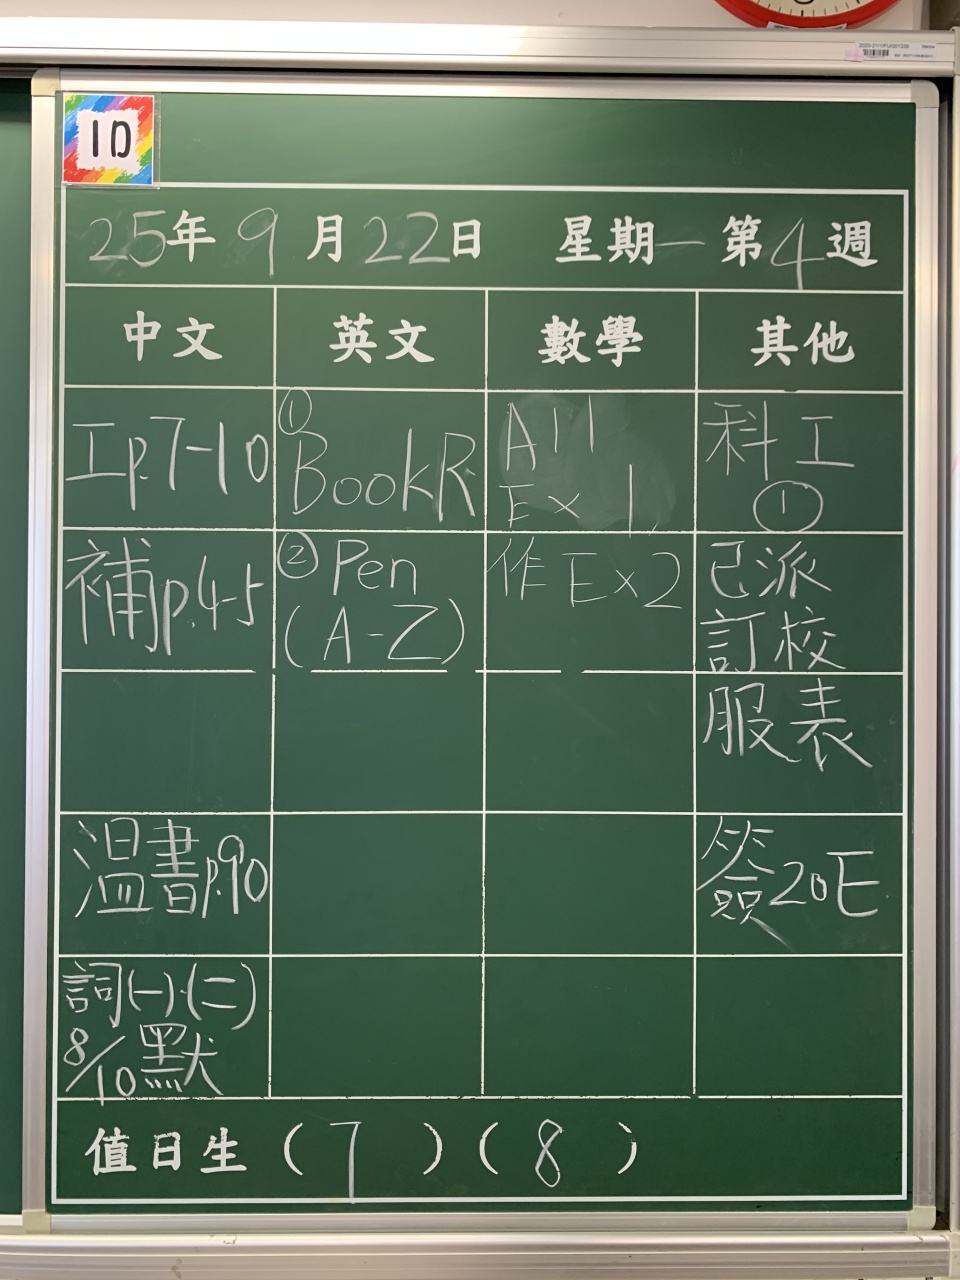 1D
25年9月22日 星期一 第4週
中文 英文 數學 其他
工p.7-10
補p.4-5
温書p.90
詞(一)·(二)
8/10默
①
BookR
②Pen
(A-Z)
A11
Ex1,
作Ex2
科工
①
已派
訂校
服表
簽20E
值日生（7）（8）